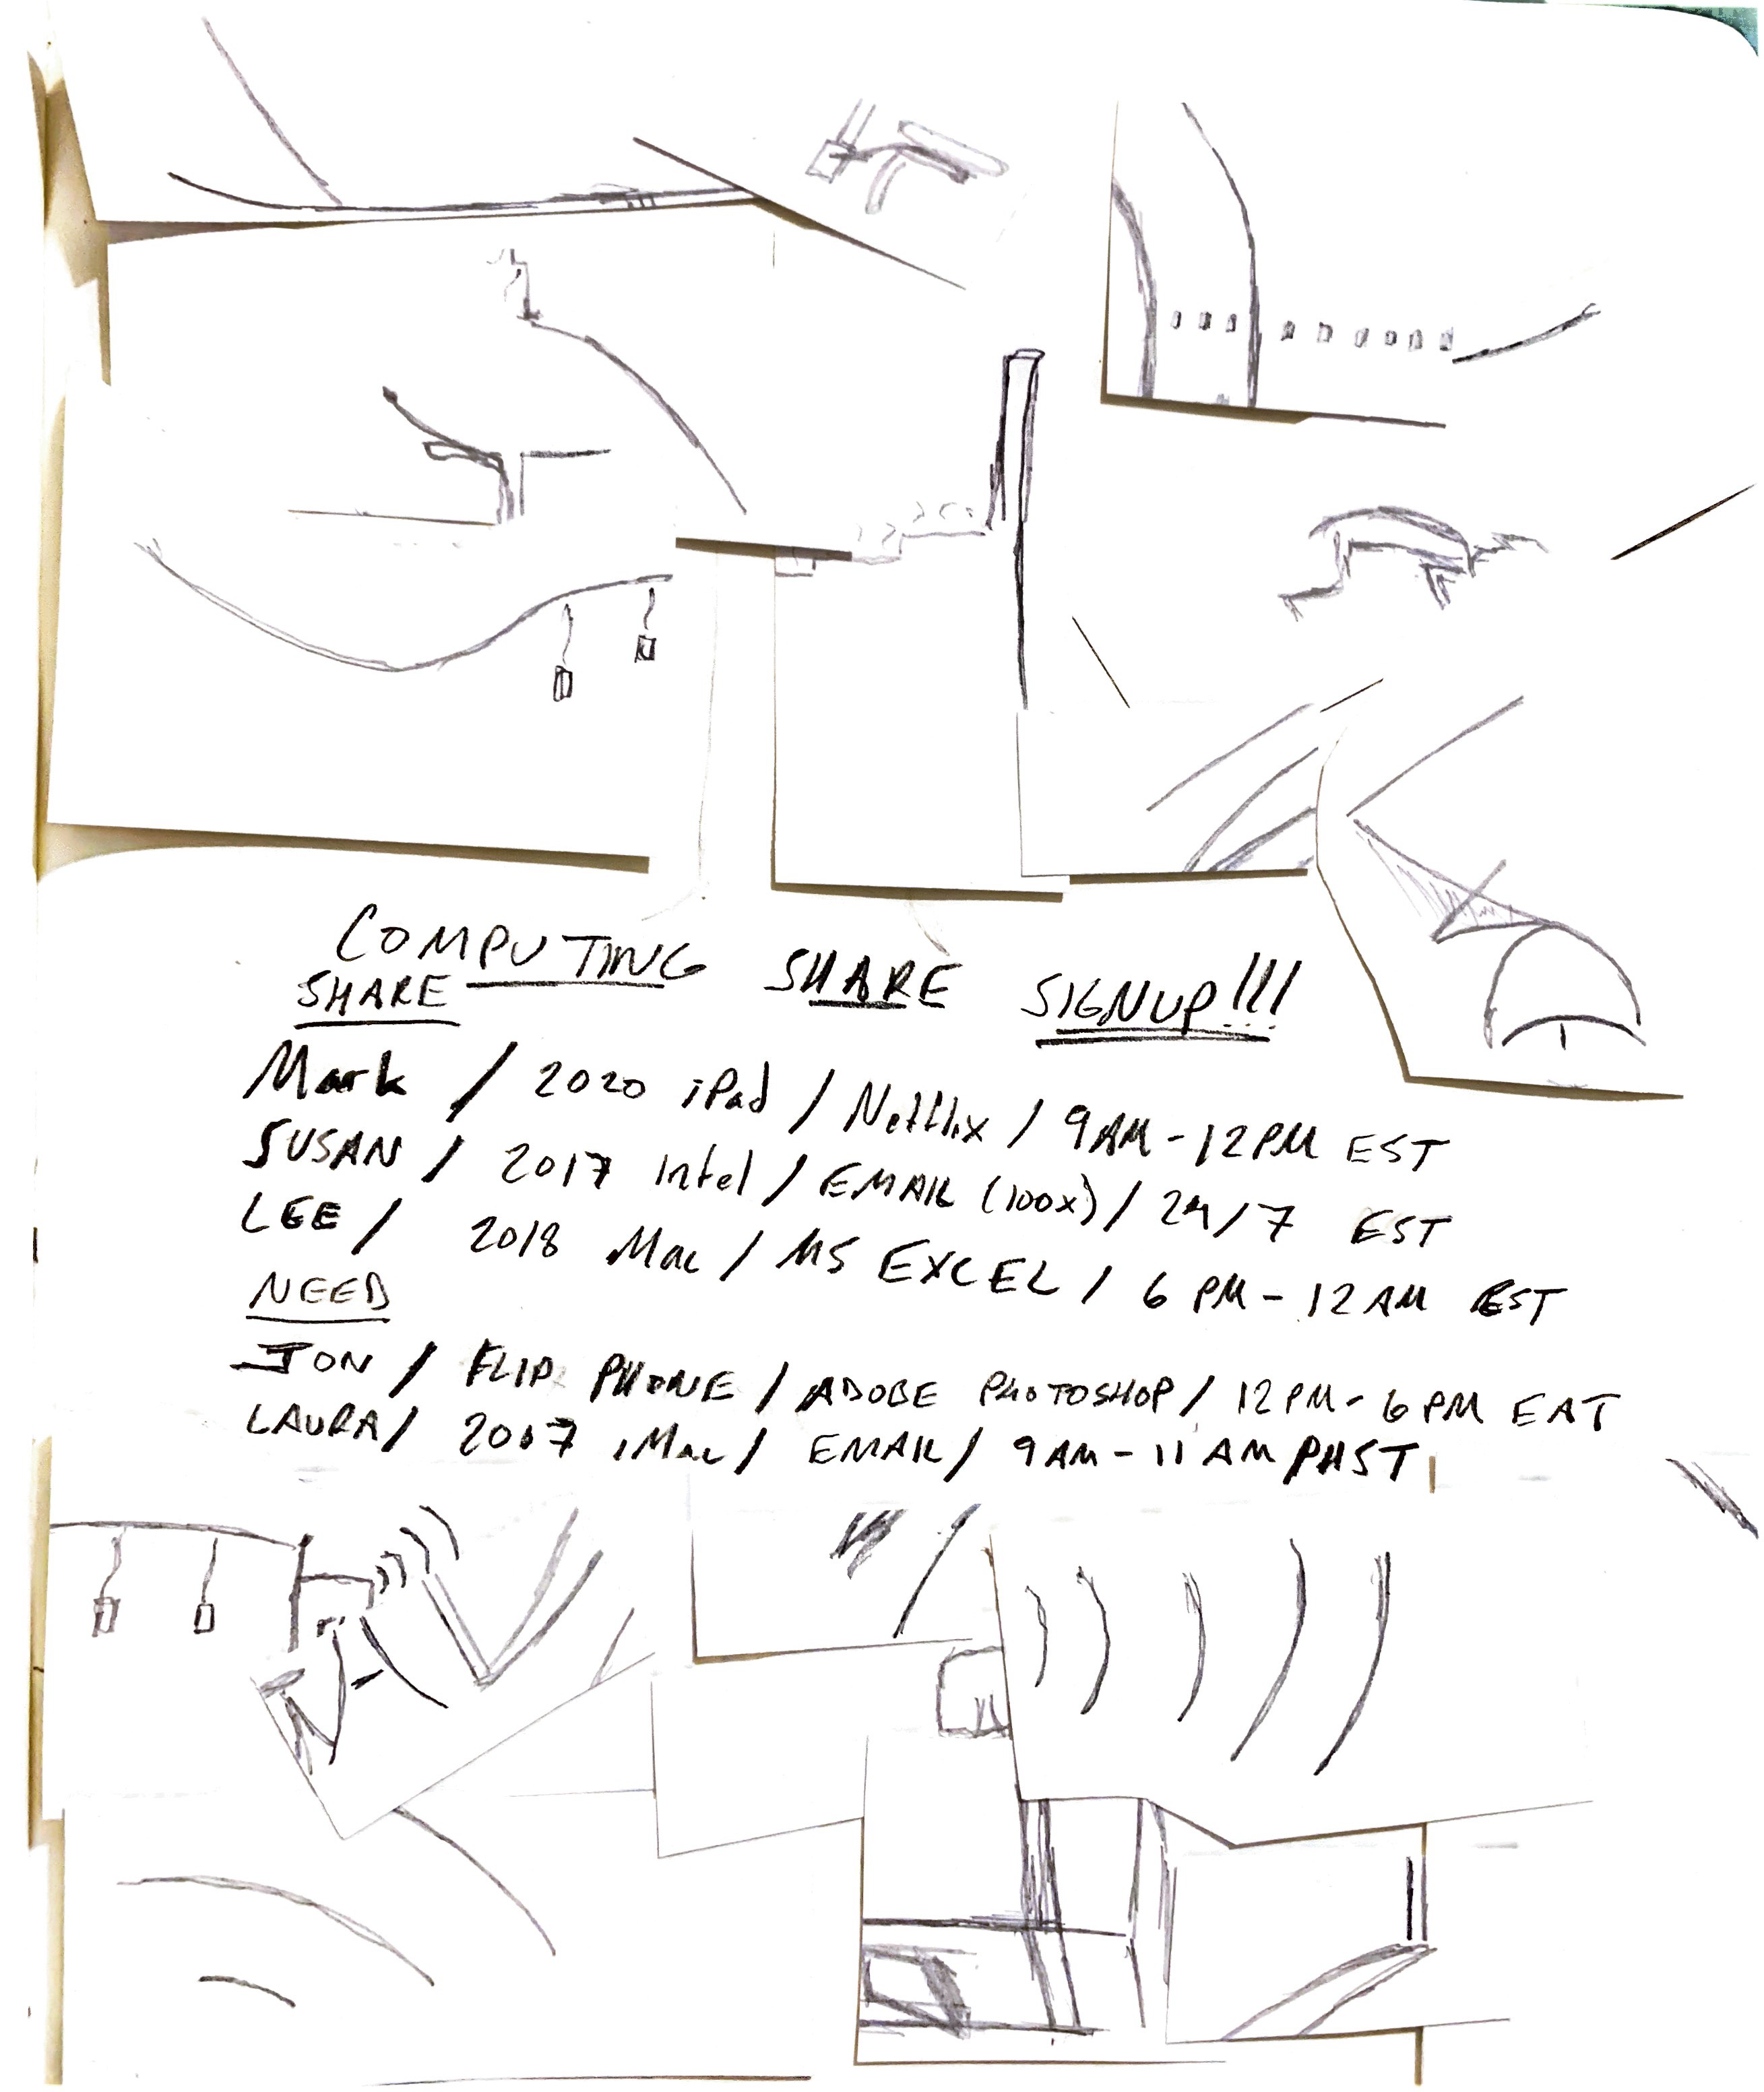 COMPUTING SHARE SIGNUP!!!
SHARE
Mark / 2020 iPad / Netflix / 9AM-12PM EST
SUSAN / 2017 Intel / EMAIL (100x) / 24/7 EST
LEE / 2018 Mac / MS EXCEL / 6 PM - 12 AM EST
NEED
JON / FLIP PHONE / ADOBE PHOTOSHOP / 12PM-6PM EAT
LAURA / 2007 iMac / EMAIL / 9AM-11AM PHST